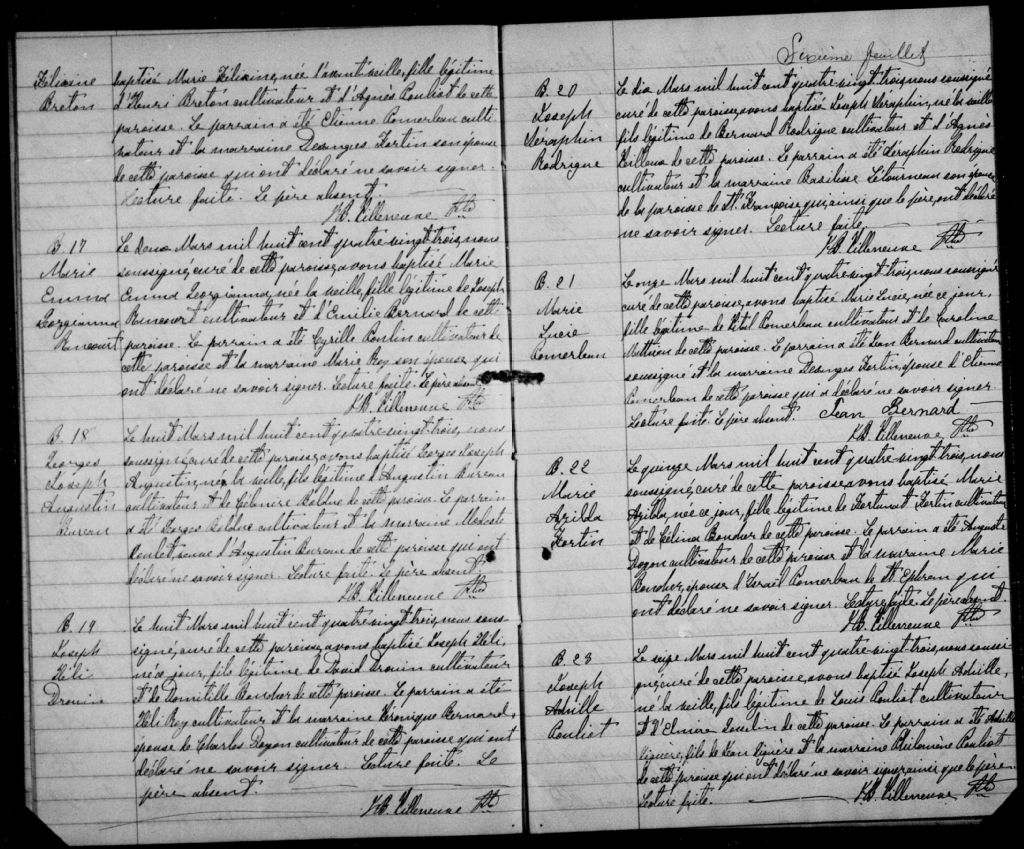 Félixine
Breton
baptisé Marie Félixine, née l'avant veille, fille légitime
d'Henri Breton cultivateur et d'Agnès Pouliot de cette
paroisse. Le parrain a été Etienne Pomerleau culti-
vateur et la marraine Desanges Fortin son épouse
de cette paroisse qui ont déclaré ne savoir signer.
Lecture faite. Le père absent
Villeneuve Ptre
B. 17
Marie
Emma
Georgianna
Rancourt
Le Deux Mars mil huit cent quatre-vingt-trois, nous
soussigné, curé de cette paroisse avons baptisé Marie
Emma Georgianna, née la veille, fille légitime de Joseph
Rancourt cultivateur et d'Emilie Bernard de cette
paroisse. Le parrain a été Cyrille Poulin cultivateur de
cette paroisse et la marraine Marie Roy son épouse qui
ont déclaré ne savoir signer. Lecture faite. Le père absent
Villeneuve Ptre
B. 18
Georges
Joseph
Augustin
Bureau
Le huit Mars mil huit cent quatre-vingt-trois, nous
soussigné, curé de cette paroisse, avons baptisé Georges Joseph
Augustin, né la veille, fils légitime d'Augustin Bureau
cultivateur et de Bolduc de cette paroisse. Le parrain
a été Bolduc cultivateur et la marraine Modeste
d'Augustin Bureau de cette paroisse qui ont
déclaré ne savoir signer. Lecture faite. Le père absent
Villeneuve Ptre
B. 19
Joseph
Héli
Drouin
Le huit Mars mil huit cent quatre-vingt-trois, nous sous-
signé, curé de cette paroisse, avons baptisé Joseph Héli
né ce jour, fils légitime de David Drouin cultivateur
et de Domitille Boucher de cette paroisse. Le parrain a été
Héli Roy cultivateur et la marraine Véronique Bernard,
épouse de Charles Doyon cultivateur de cette paroisse qui ont
déclaré ne savoir signer. Lecture faite. Le
père absent.
Villeneuve Ptre
Sixième feuillet
B. 20
Joseph
Séraphin
Rodrigue
Le dix Mars mil huit cent quatre-vingt-trois, nous soussigné
curé de cette paroisse, avons baptisé Joseph Séraphin, né la veille
fils légitime de Bernard Rodrigue cultivateur et d'Agnès
Veilleux de cette paroisse. Le parrain a été Séraphin Rodrigue
cultivateur et la marraine Basilisse Létourneau son épouse
de la paroisse de St. François qui, ainsi que le père, ont déclaré
ne savoir signer. Lecture faite.
Villeneuve Ptre
B. 21
Marie
Lucie
Pomerleau
Le onze Mars mil huit cent quatre-vingt-trois, nous soussigné
curé de cette paroisse, avons baptisé Marie Lucie, née ce jour,
fille légitime de Vital Pomerleau cultivateur et de Caroline
de cette paroisse. Le parrain a été Jean Bernard cultivateur
soussigné et la marraine Desanges Fortin, épouse d'Etienne
Pomerleau de cette paroisse qui a déclaré ne savoir signer.
Lecture faite. Le père absent. Jean Bernard
Villeneuve Ptre
B. 22
Marie
Azilda
Fortin
Le quinze Mars mil huit cent quatre-vingt-trois, nous
soussigné, curé de cette paroisse, avons baptisé Marie
Azilda, née ce jour, fille légitime de Fortunat Fortin cultivateur
et de Célina Boucher de cette paroisse. Le parrain a été Auguste
Doyon cultivateur de cette paroisse et la marraine Marie
Boucher, épouse d'Israël Pomerleau de St. Ephrem qui
ont déclaré ne savoir signer. Lecture faite. Le père absent.
Villeneuve Ptre
B. 23
Joseph
Achille
Pouliot
Le seize Mars mil huit cent quatre-vingt-trois, nous soussi-
gné, curé de cette paroisse, avons baptisé Joseph Achille,
né la veille, fils légitime de Louis Pouliot cultivateur
et d'Elmire Josselin de cette paroisse. Le parrain a été Achille
Giguère, fils de Jean Giguère et la marraine Philomène Pouliot
de cette paroisse qui ont déclaré ne savoir signer ainsi que le père.
Lecture faite.
Villeneuve Ptre